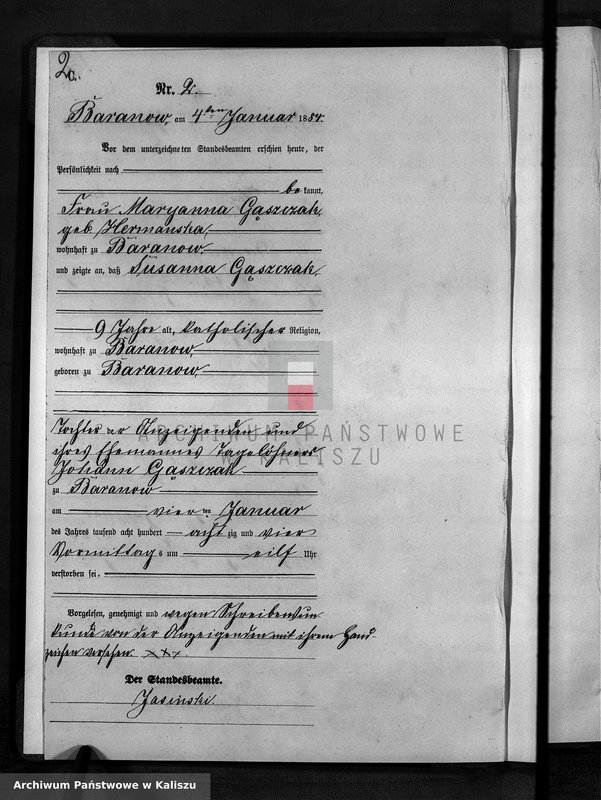 2
C.
Nr. 2.
Baranow, am 4ten Januar 1884.
Vor dem unterzeichneten Standesbeamten erschien heute, der
Persönlichkeit nach
bekannt,
Frau Maryanna Gąszczak,
geb. Hermańska,
wohnhaft zu Baranow,
und zeigte an, daß Susanna Gąszczak,
9 Jahre alt, katholischer Religion,
wohnhaft zu Baranow,
geboren zu Baranow,
Tochter der Anzeigenden und
ihres Ehemannes Tagelöhners
Johann Gąszczak
zu Baranow
am vierten Januar
des Jahres tausend acht hundert achtzig und vier
Vormittags um eilf Uhr
verstorben sei.
Vorgelesen, genehmigt und wegen Schreibensun-
kunde von der Anzeigenden mit ihrem Hand-
zeichen versehen. xxx.
Der Standesbeamte.
Jasinski.
ARCHIWUM PAŃSTWOWE
W KALISZU
Archiwum Państwowe w Kaliszu